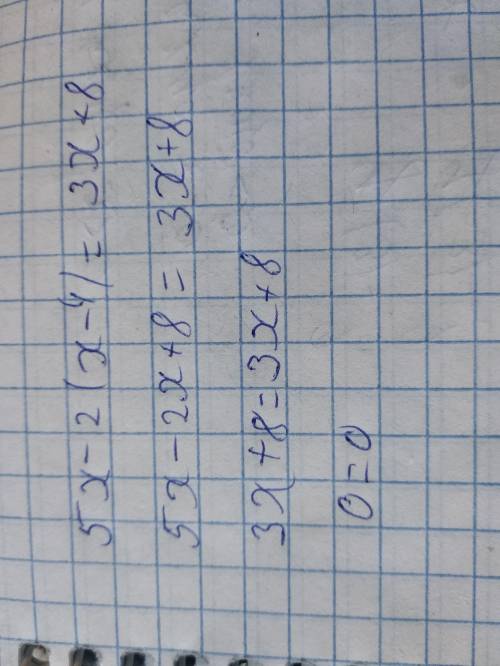 5x-2(x-4)=3x+8
5x-2x+8=3x+8
3x+8=3x+8
0=0